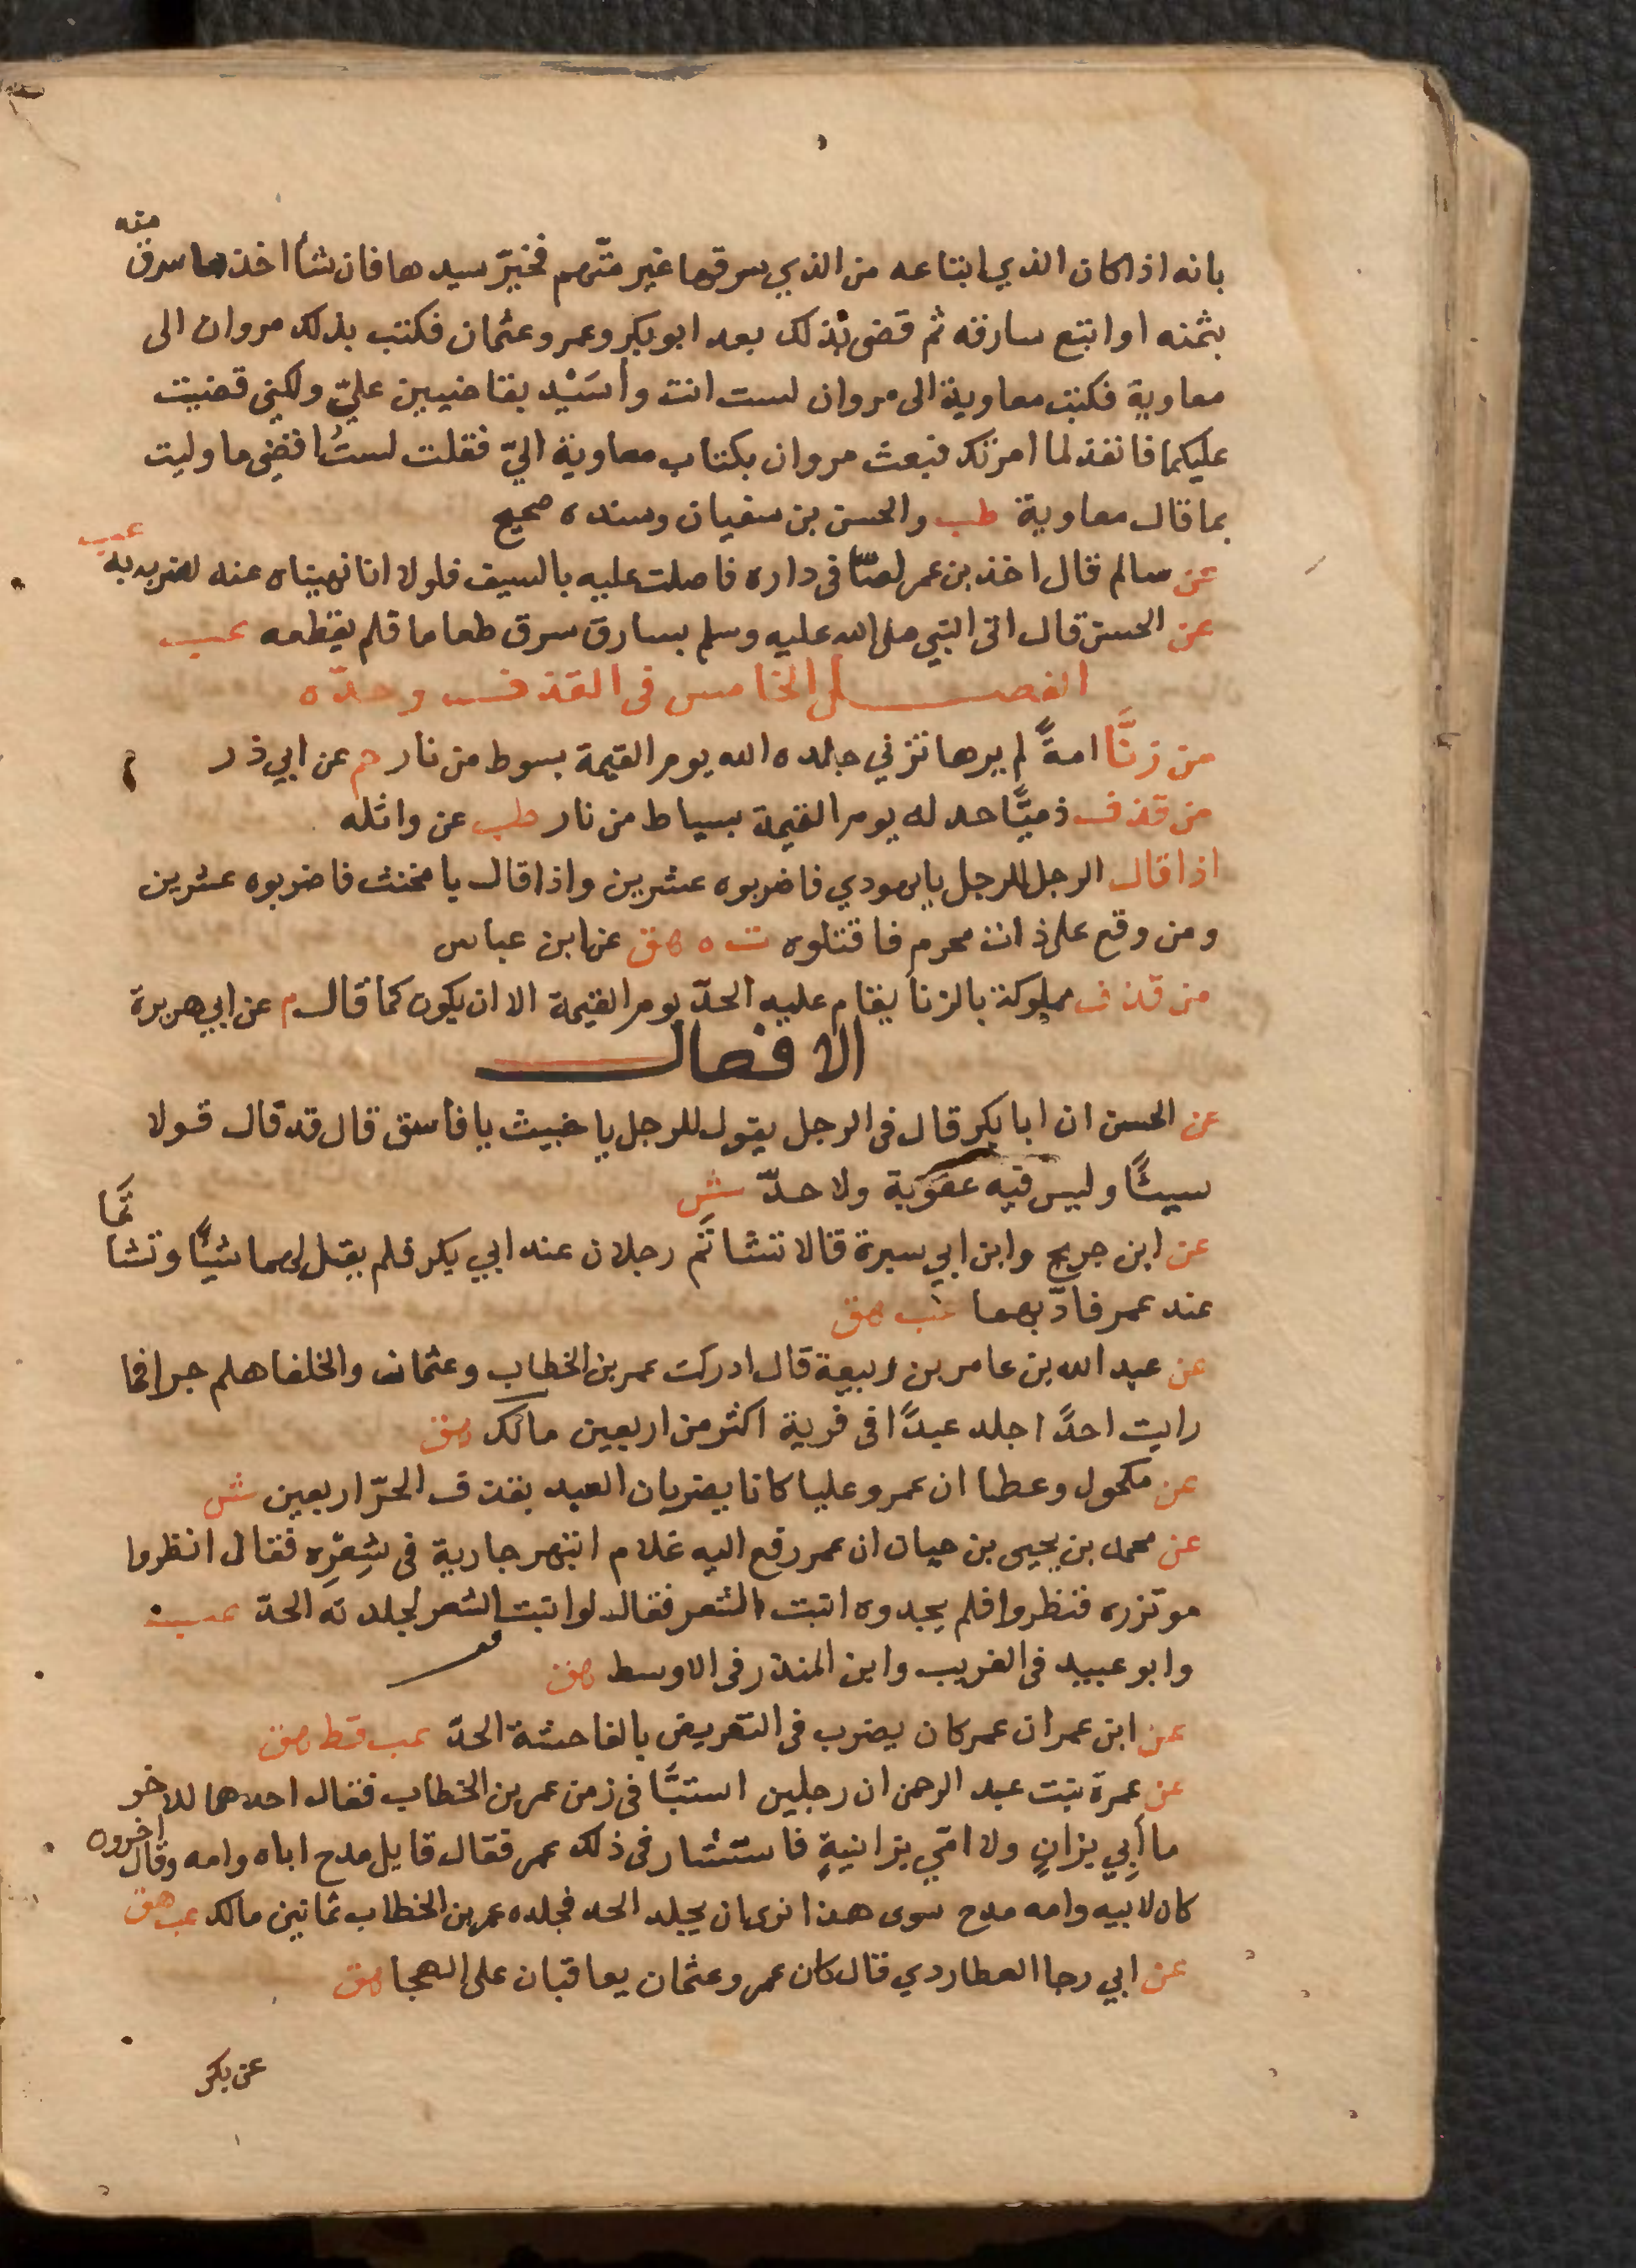 بانه اذا كان الذي ابتاعه من الذي سرقها غير متهم فخيّر سيدها فان شأ اخذ ما سرق منه
بثمنه او ابتع سارقه ثم قضى بذلك بعد ابو بكر وعمر وعثمان فكتب بذلك مروان الى
معاوية فكتب معاوية الى مروان لست انت وأسَيْد بقاضيين عليّ ولكني قضيت
عليكما فانفذ لما امرتك فبعث مروان بكتاب معاوية اليّ فقلت لستُ اقضي ما وليت
بما قال معاوية طب والحسن بن سفيان وسنده صحيح
عن سالم قال اخذ بن عمر لصّا فى داره فاصلت عليه بالسيف فلولا انا نهيناه عنه لضربه به عب
عن الحسن قال اتى النبي صلى الله عليه وسلم بسارق سرق طعاما فلم يقطعه عب
الفصل الخامس فى القذف وحدّه
من زنَّا امةً لم يرها تزني جلده الله يوم القيمة بسوط من نار حم عن ابي ذر
من قذف ذميًّا حد له يوم القيمة بسياط من نار طب عن واثله
اذا قال الرجل للرجل يا يهودي فاضربوه عشرين واذا قال يا مخنث فاضربوه عشرين
ومن وقع على ذات محرم فاقتلوه ت ه هق عن ابن عباس
من قذف مملوكه بالزنا يقام عليه الحدّ يوم القيمة الا ان يكون كما قال م عن ابي هريرة
الافعال
عن الحسن ان ابا بكر قال فى الرجل يقول للرجل يا خبيث يا فاسق قال قد قال قولا
سيئًا وليس فيه عقوبة ولا حدّ ش
عن ابن جريج وابن ابي سبرة قالا تشاتَم رجلان عند ابي بكر فلم يقل لهما شيًّا وتشاتما
عند عمر فادّبهما عب هق
عن عبد الله بن عامر بن ربيعة قال ادركت عمر بن الخطاب وعثمان والخلفا هلم جرا فما
رايت احدًا اجلد عبدًا فى فرية اكثر من اربعين مالك هق
عن مكحول وعطا ان عمر وعليا كانا يضربان العبد بقذف الحرّ اربعين ش
عن محمد بن يحيى بن حبان ان عمر رفع اليه غلام ابتهر جارية فى شِعْرِه فقال انظروا
موتزره فنظروا فلم يجدوه انبت الشعر فقال لو انبت الشعر لجلدته الحدّ عب
وابو عبيد فى الغريب وابن المنذر فى الاوسط هق
عن ابن عمر ان عمر كان يضرب فى التعريض بالفاحشة الحدّ عب قط هق
عن عمرة بنت عبد الرحمن ان رجلين استبَّا فى زمن عمر بن الخطاب فقال احدهما للاخر
ما أبِي بزانٍ ولا امّي بزانيةٍ فاستشار فى ذلك عمر فقال قايل مدح اباه وامه وقال اخرون
كان لابيه وامه مدح سوى هذا نرى ان يجلد الحد فجلده عمر بن الخطاب ثمانين مالك عب هق
عن ابي رجا العطاردي قال كان عمر وعثمان يعاقبان على الهجا هق
عن بكر